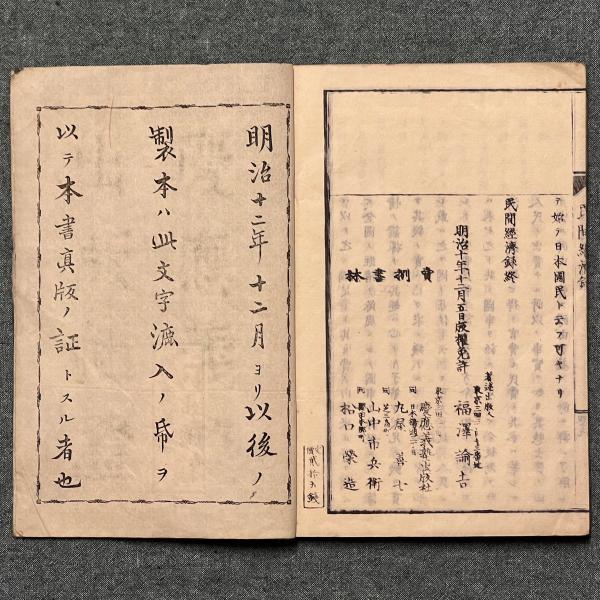 テ始テ日本國民ト云フ可キナリ
民間經濟録終
明治十年十二月五日版權免許
著述出版人
福澤諭吉
賣捌書林
慶應義塾出版社
同
日本橋通
丸屋善七
同
山中市兵衛
同
松口榮造
明治十二年十二月ヨリ以後ノ
製本ハ此文字漉入ノ帋ヲ
以テ本書真版ノ証トスル者也